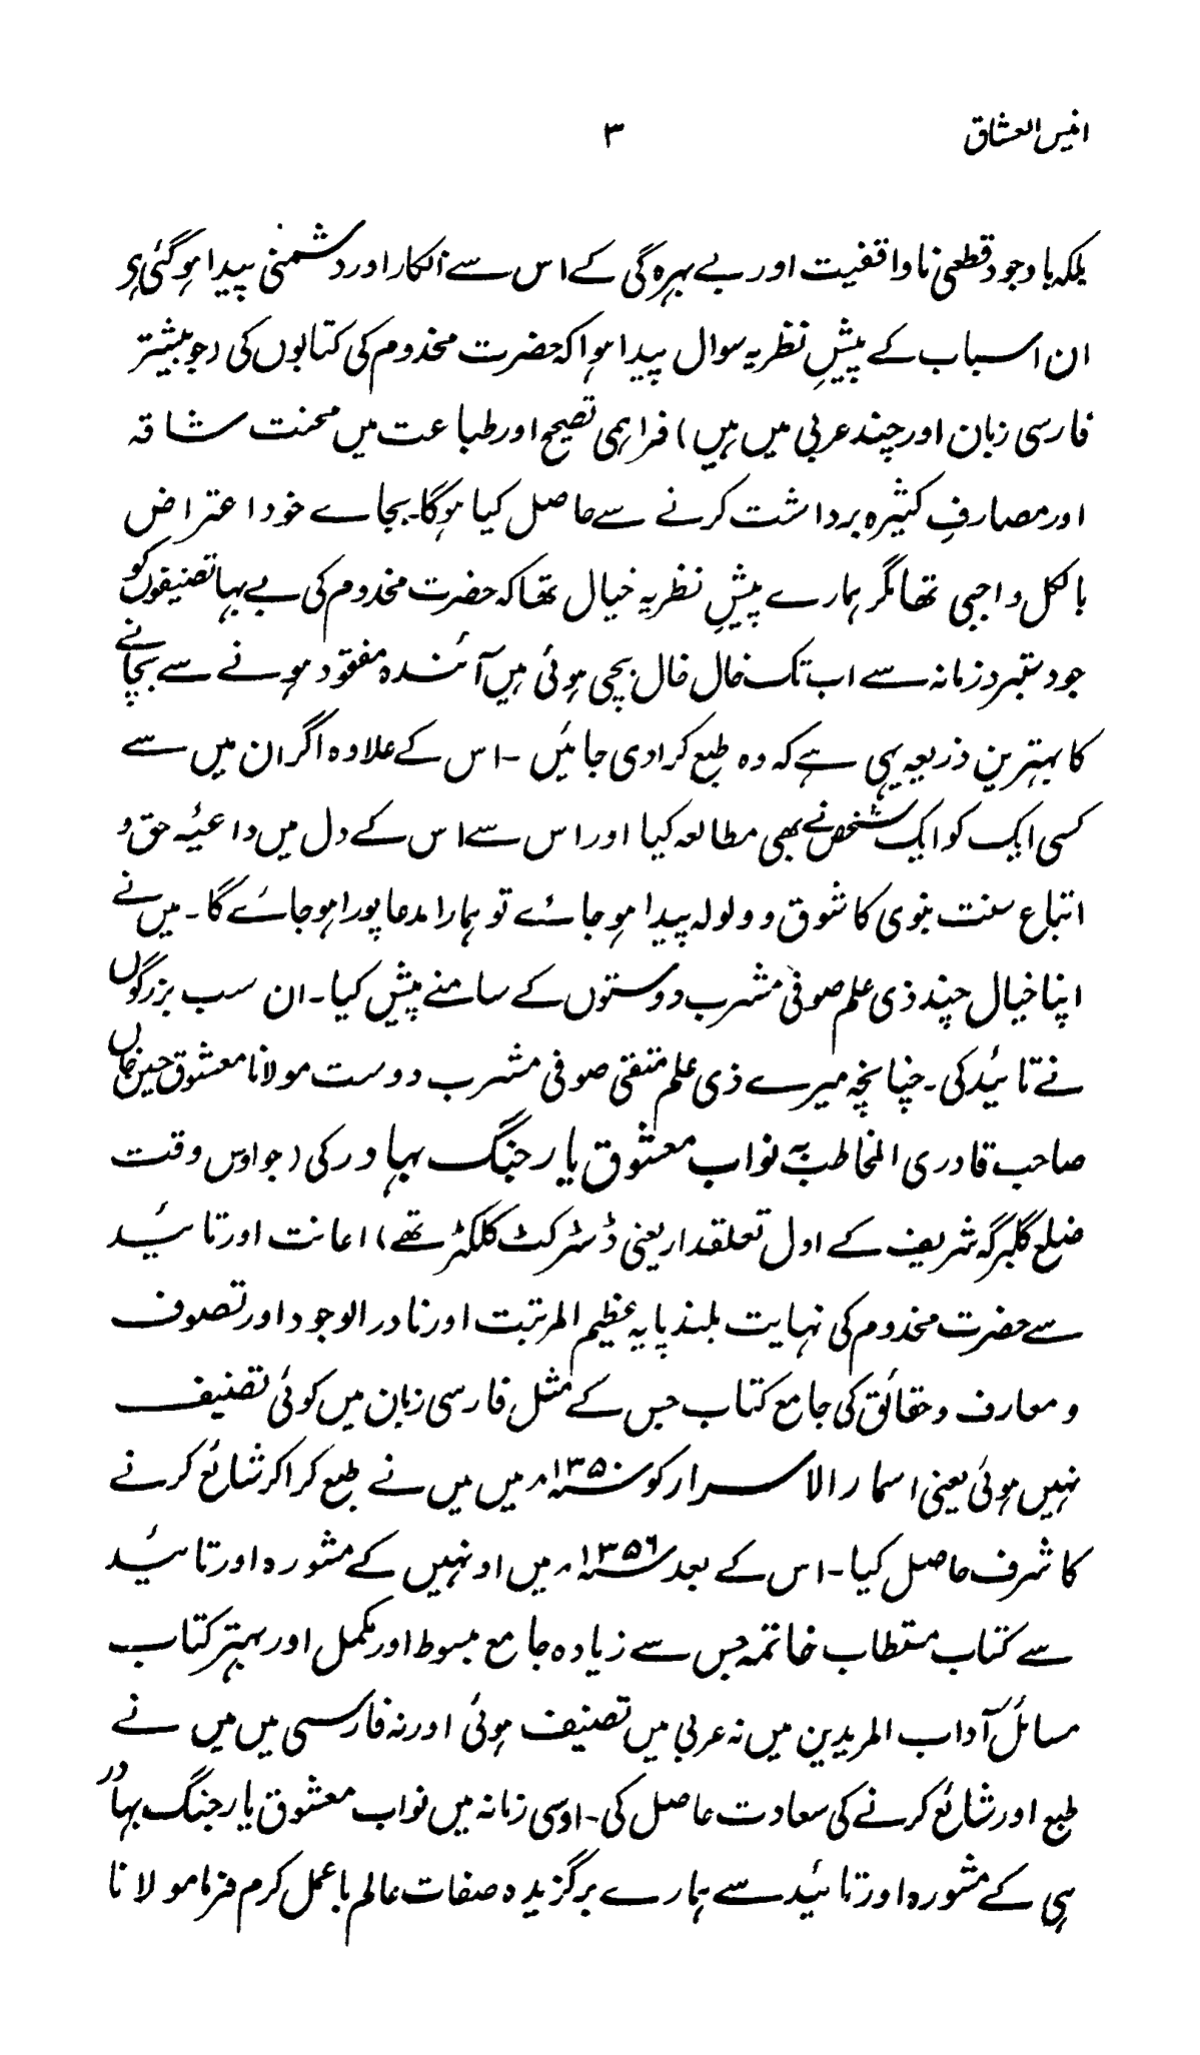 انیس العشاق ۳
بلکہ باوجود قطعی ناواقفیت اور بے بہرہ گی کے اس سے انکار اور دشمنی پیدا ہو گئی ہی
ان اسباب کے پیشِ نظر یہ سوال پیدا ہوا کہ حضرت مخدوم کی کتابوں کی (جو بیشتر
فارسی زبان اور چند عربی میں ہیں) فراہمی تصیح اور طباعت میں محنت شاقہ
اور مصارفِ کثیرہ برداشت کرنے سے حاصل کیا ہوگا۔ بجاے خود اعتراض
بالکل واجبی تھا مگر ہمارے پیشِ نظر یہ خیال تھا کہ حضرت مخدوم کی بے بہا تصنیفوں کو
جو دستبرد زمانہ سے اب تک خال خال بچی ہوئی ہیں آئندہ مفقود ہونے سے بچانے
کا بہترین ذریعہ یہی ہے کہ وہ طبع کرادی جائیں۔ اس کے علاوہ اگر ان میں سے
کسی ایک کو ایک شخص نے بھی مطالعہ کیا اور اس سے اس کے دل میں داعیۂ حق و
اتباع سنت نبوی کا شوق و ولولہ پیدا ہو جائے تو ہمارا مدعا پورا ہو جائے گا۔ میں نے
اپنا خیال چند ذی علم صوفی مشرب دوستوں کے سامنے پیش کیا۔ ان سب بزرگوں
نے تائید کی۔ چنانچہ میرے ذی علم متقی صوفی مشرب دوست مولانا معشوق حسین خاں
صاحب قادری المخاطب بہ نواب معشوق یار جنگ بہادر کی (جو اوس وقت
ضلع گلبرگہ شریف کے اول تعلقدار یعنی ڈسٹرکٹ کلکٹر تھے) اعانت اور تائید
سے حضرت مخدوم کی نہایت بلند پایہ عظیم المرتبت اور نادر الوجود اور تصوف
و معارف و حقائق کی جامع کتاب جس کے مثل فارسی زبان میں کوئی تصنیف
نہیں ہوئی یعنی اسمار الاسرار کو ۱۳۵۰؁ھ میں میں نے طبع کراکر شائع کرنے
کا شرف حاصل کیا۔ اس کے بعد ۱۳۵۶؁ھ میں اونہیں کے مشورہ اور تائید
سے کتاب مستطاب خاتمہ جس سے زیادہ جامع مبسوط اور مکمل اور بہتر کتاب
مسائل آداب المریدین میں نہ عربی میں تصنیف ہوئی اور نہ فارسی میں میں نے
طبع اور شائع کرنے کی سعادت حاصل کی۔ اوسی زمانہ میں نواب معشوق یار جنگ بہادر
ہی کے مشورہ اور تائید سے ہمارے برگزیدہ صفات عالم باعمل کرم فرما مولانا